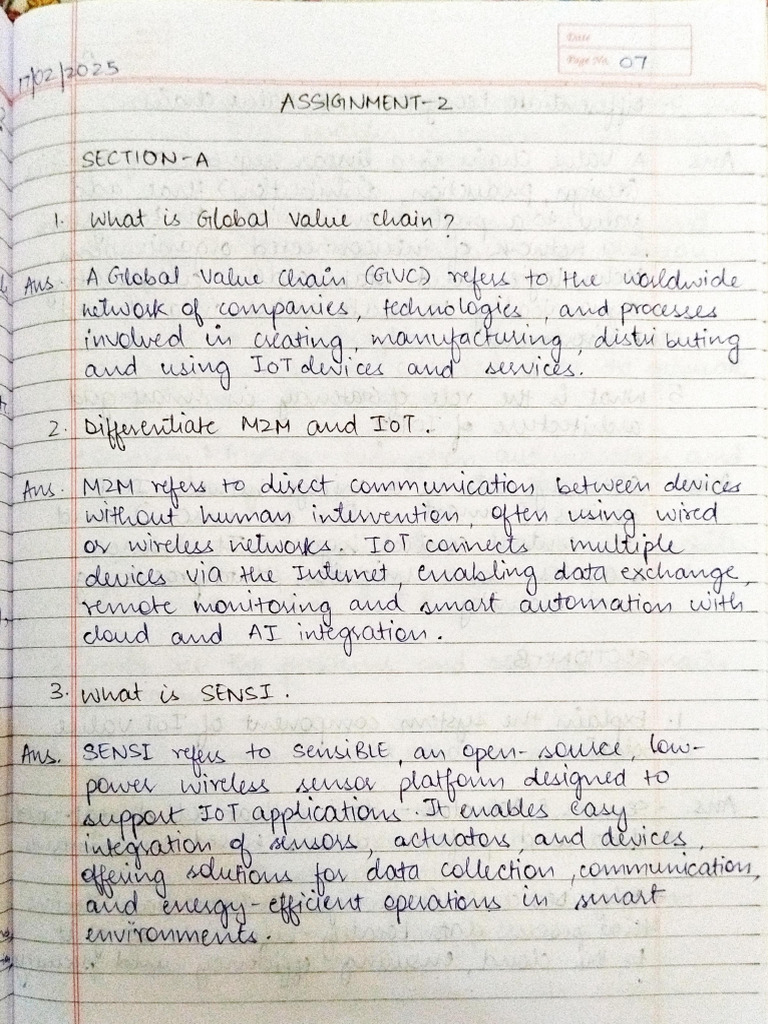 17/02/2025
Date
Page No. 07
ASSIGNMENT-2
SECTION-A
1. What is Global Value chain?
Ans. A Global Value Chain (GVC) refers to the worldwide
network of companies, technologies, and processes
involved in creating, manufacturing, distributing
and using IoT devices and services.
2. Differentiate M2M and IoT.
Ans. M2M refers to direct communication between devices
without human intervention, often using wired
or wireless networks. IoT connects multiple
devices via the Internet, enabling data exchange,
remote monitoring and smart automation with
cloud and AI integration.
3. What is SENSI.
Ans. SENSI refers to SENSIBLE, an open-source, low-
power wireless sensor platform designed to
support IoT applications. It enables easy
integration of sensors, actuators, and devices,
offering solutions for data collection, communication,
and energy-efficient operations in smart
environments.